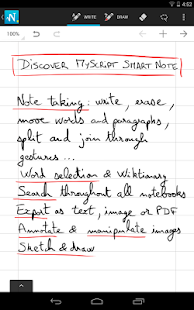 4:52
N WRITE DRAW
100%
DISCOVER MYSCRIPT SMART NOTE
Note taking: write, erase,
move words and paragraphs,
split and join through
gestures ...
Word selection & Wiktionary
Search throughout all notebooks
Export as text, image or PDF
Annotate & manipulate images
Sketch & draw